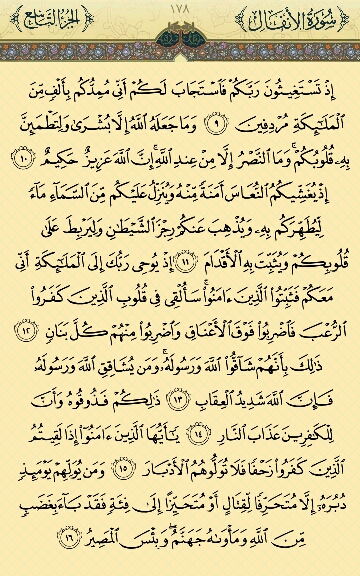 سُورَةُ الأَنفَالِ ١٧٨ الجُزءُ التَّاسِعُ
إِذْ تَسْتَغِيثُونَ رَبَّكُمْ فَاسْتَجَابَ لَكُمْ أَنِّي مُمِدُّكُم بِأَلْفٍ مِّنَ
الْمَلَٰئِكَةِ مُرْدِفِينَ ٩ وَمَا جَعَلَهُ اللَّهُ إِلَّا بُشْرَىٰ وَلِتَطْمَئِنَّ
بِهِ قُلُوبُكُمْ ۚ وَمَا النَّصْرُ إِلَّا مِنْ عِندِ اللَّهِ ۚ إِنَّ اللَّهَ عَزِيزٌ حَكِيمٌ ١٠
إِذْ يُغَشِّيكُمُ النُّعَاسَ أَمَنَةً مِّنْهُ وَيُنَزِّلُ عَلَيْكُم مِّنَ السَّمَاءِ مَاءً
لِّيُطَهِّرَكُم بِهِ وَيُذْهِبَ عَنكُمْ رِجْزَ الشَّيْطَٰنِ وَلِيَرْبِطَ عَلَىٰ
قُلُوبِكُمْ وَيُثَبِّتَ بِهِ الْأَقْدَامَ ١١ إِذْ يُوحِي رَبُّكَ إِلَى الْمَلَٰئِكَةِ أَنِّي
مَعَكُمْ فَثَبِّتُوا الَّذِينَ ءَامَنُوا ۚ سَأُلْقِي فِي قُلُوبِ الَّذِينَ كَفَرُوا
الرُّعْبَ فَاضْرِبُوا فَوْقَ الْأَعْنَاقِ وَاضْرِبُوا مِنْهُمْ كُلَّ بَنَانٍ ١٢
ذَٰلِكَ بِأَنَّهُمْ شَاقُّوا اللَّهَ وَرَسُولَهُ ۚ وَمَن يُشَاقِقِ اللَّهَ وَرَسُولَهُ
فَإِنَّ اللَّهَ شَدِيدُ الْعِقَابِ ١٣ ذَٰلِكُمْ فَذُوقُوهُ وَأَنَّ
لِلْكَٰفِرِينَ عَذَابَ النَّارِ ١٤ يَٰأَيُّهَا الَّذِينَ ءَامَنُوا إِذَا لَقِيتُمُ
الَّذِينَ كَفَرُوا زَحْفًا فَلَا تُوَلُّوهُمُ الْأَدْبَارَ ١٥ وَمَن يُوَلِّهِمْ يَوْمَئِذٍ
دُبُرَهُ إِلَّا مُتَحَرِّفًا لِّقِتَالٍ أَوْ مُتَحَيِّزًا إِلَىٰ فِئَةٍ فَقَدْ بَاءَ بِغَضَبٍ
مِّنَ اللَّهِ وَمَأْوَىٰهُ جَهَنَّمُ ۖ وَبِئْسَ الْمَصِيرُ ١٦